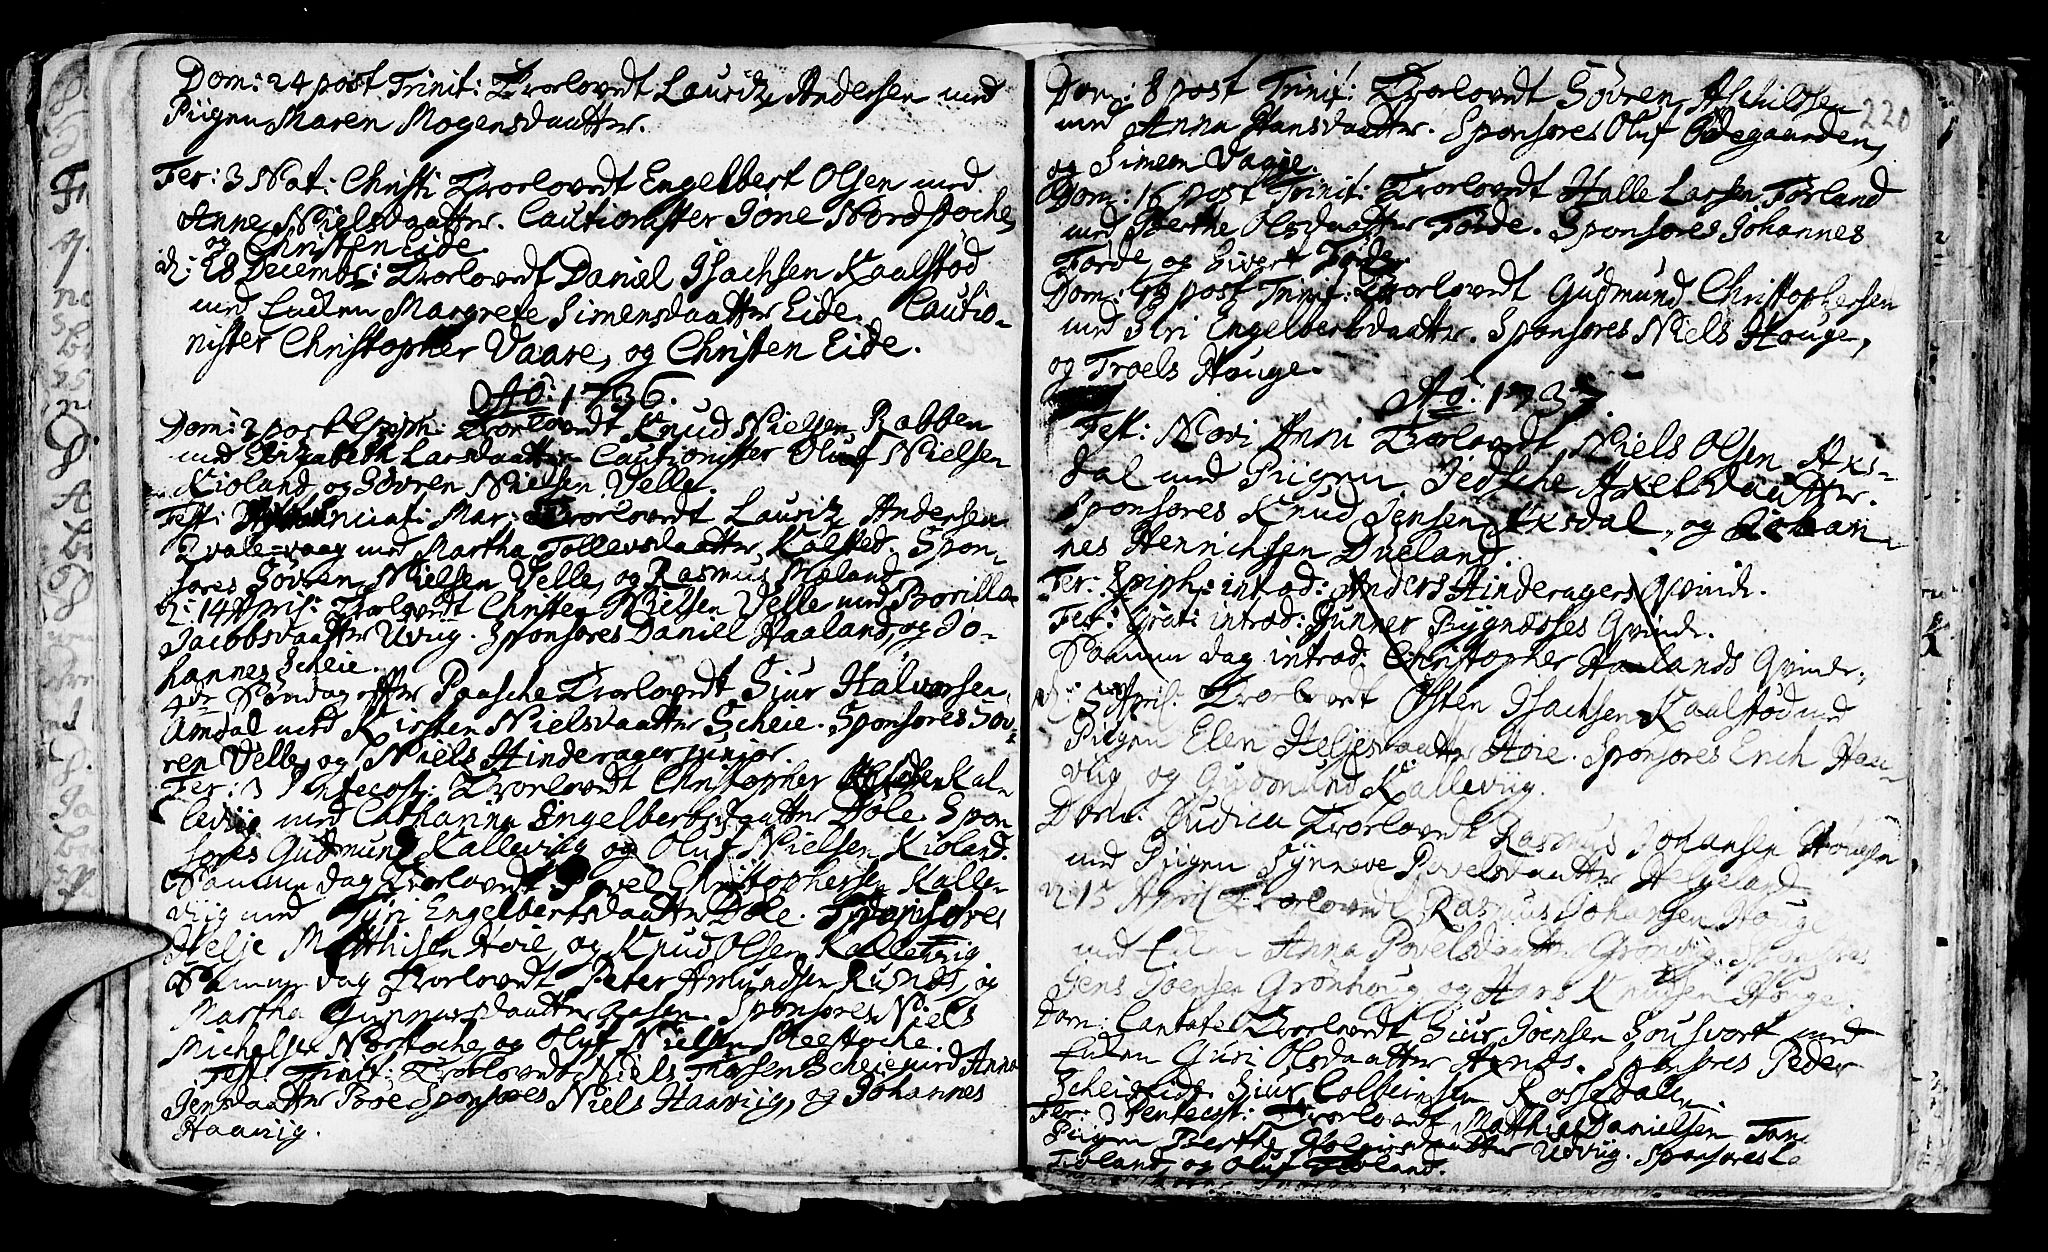 Dom: 24 post Trinit: Trorlovedt Lauritz Andersen med
Piigen Maren Mogensdaatter.
Fer: 3 Nat: Christi Trorlovedt Engelbert Olsen med
Anne Nielsdaatter. Cautionister Jone Nordstoche,
og Christen Eide.
d: 28 Decembr: Trorlovedt Daniel Isachsen Kaalstød
med Enchen Margrete Simensdaatter Eide. Cautio-
nister Christopher Vaare, og Christen Eide.
Aō: 1736.
Dom: 2 post Epiph: Trorlovedt Knud Nielsen Rabben
med Elizabeth Larsdaatter Cautionister Oluf Nielsen
Kioland og Søvren Nielsen Velle.
Fest: Annunciat: Mar: Trorlovedt Lauritz Andersen
Qvale-vaag med Martha Tollevsdaatter Kalsted. Spon-
sores Søvren Nielsen Velle, og Rasmus Mæland.
d: 14 April: Trorlovedt Christen Nielsen Velle med Borilla
Jacobsdaatter Udvig. Sponsores Daniel Haaland, og Jo-
hannes Scheie.
4de Søndag efter Paasche Trorlovedt Siur Halvorsen
Amdal med Kirsten Nielsdaatter Scheie. Sponsores Søv-
ren Velle, og Niels Hinderager junior.
Fer: 3 Pentecost: Trorlovedt Christopher Kal-
leviig med Catharina Engelbertsdaatter Dole Spon
sores Gudmund Kalleviig og Oluf Nielsen Kioland.
Samme dag Trorlovedt Povel Christophersen Kalle-
viig med Siri Engelbertsdaatter Dole. Sponsores
Helje Matthisen Høie, og Knud Olsen Kalleviig
Samme dag Trorlovedt Peter Amundsen og
Martha Gunnersdaatter Aasen. Sponsores Niels
Michelsen Norstoche, og Oluf Nielsen Meestoche.
Fest: Trinit: Trorlovedt Niels Scheie med Anna
Jensdaatter Boe Sponsores Niels Haaviig, og Johannes
Haavig.
220
Dom: 8 post Trinit: Trorlovedt Søvren Aschildsen
med Anna Hansdaatter. Sponsores Oluf Ødegaarden,
og Simeon Vaage.
Dom: 16 post Trinit: Trorlovedt Halle Larsen Førland
med Berthe Olsdaatter Førde. Sponsores Johannes
Førde, og Sivert Førde.
Dom: 19 post Trinit: Trorlovedt Gudmund Christophersen
med Siri Engelbertsdaatter. Sponsores Niels Houge,
og Troels Houge.
Aō: 1737.
Fest: Novi Anni Trorlovedt Niels Olsen Axs-
dal med Piigen Jedsche Axelsdaatter.
Sponsores Knud Jensen Axsdal, og Johan-
nes Henrichsen Dueland.
Fer: Epiph: introd: Anders Hinderagers Qvinde.
Fer: Grati introd: Gunner Rygnæsses Qvinde.
Samme dag introd: Christopher Haalands Qvinde.
d: 5 April: Trorlovedt Østen Isachsen Kaalstød med
Piigen Elen Heljesdaatter Høie. Sponsores Erich Haa-
viig og Gudmund Kalleviig.
Dom: Judica Trorlovedt Rasmus Johansen
med Piigen Synneve Povelsdaatter Helgeland
d. 15 April Trorlovedt Rasmus Johansen Houge
med Anna Povelsdaatter Sponsores
Jens Joensen Grønhoug og Hans Knudsen Houge.
Dom: Cantate Trorlovedt Siur Joensen med
Enchen Guri Olsdaatter Sponsores Peder
Scheiseide. Siur Colbeinsen Rossedalen.
Fer: 3 Pentecost: Trorlovedt Matthis Danielsen
Piigen Berthe Udviig. Sponsores
og Oluf